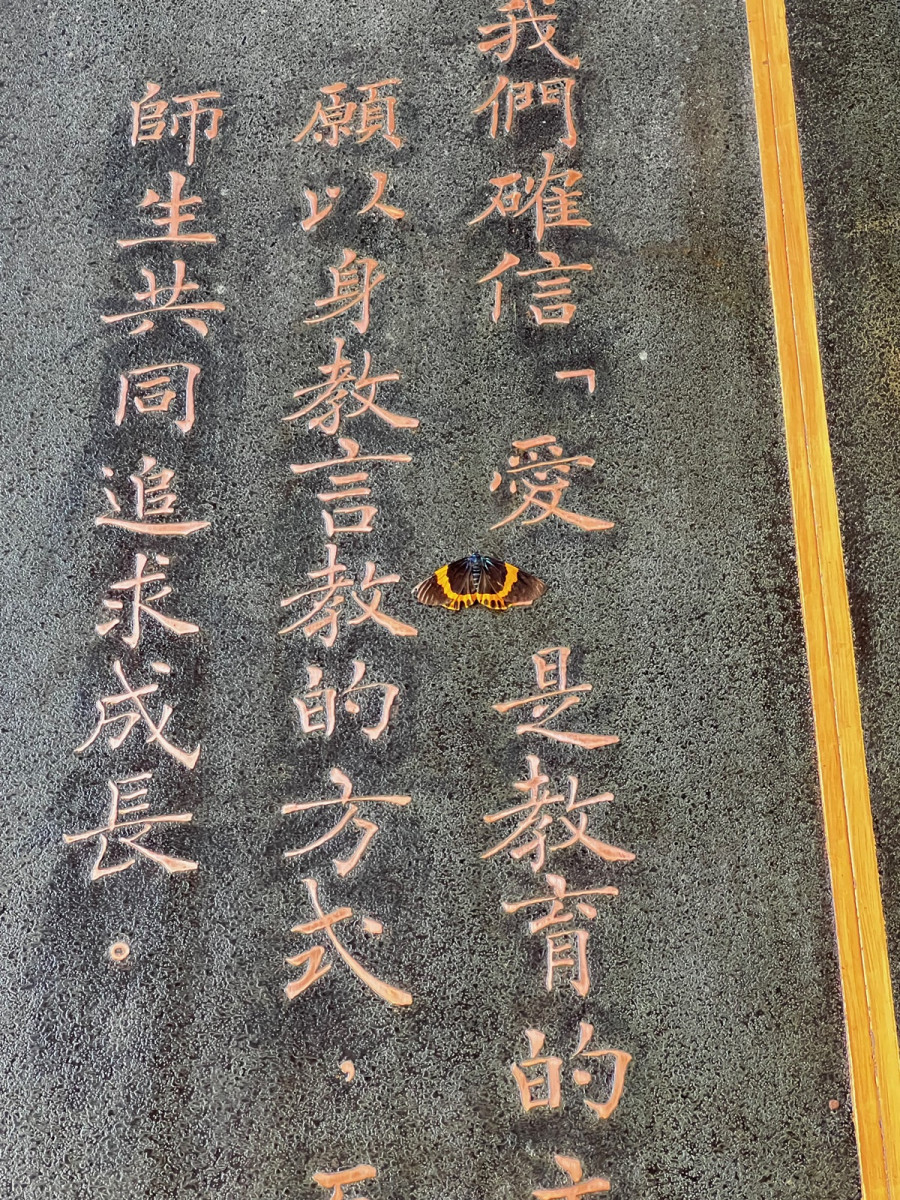 我們確信「愛 是教育的
願以身教言教的方式，
師生共同追求成長。